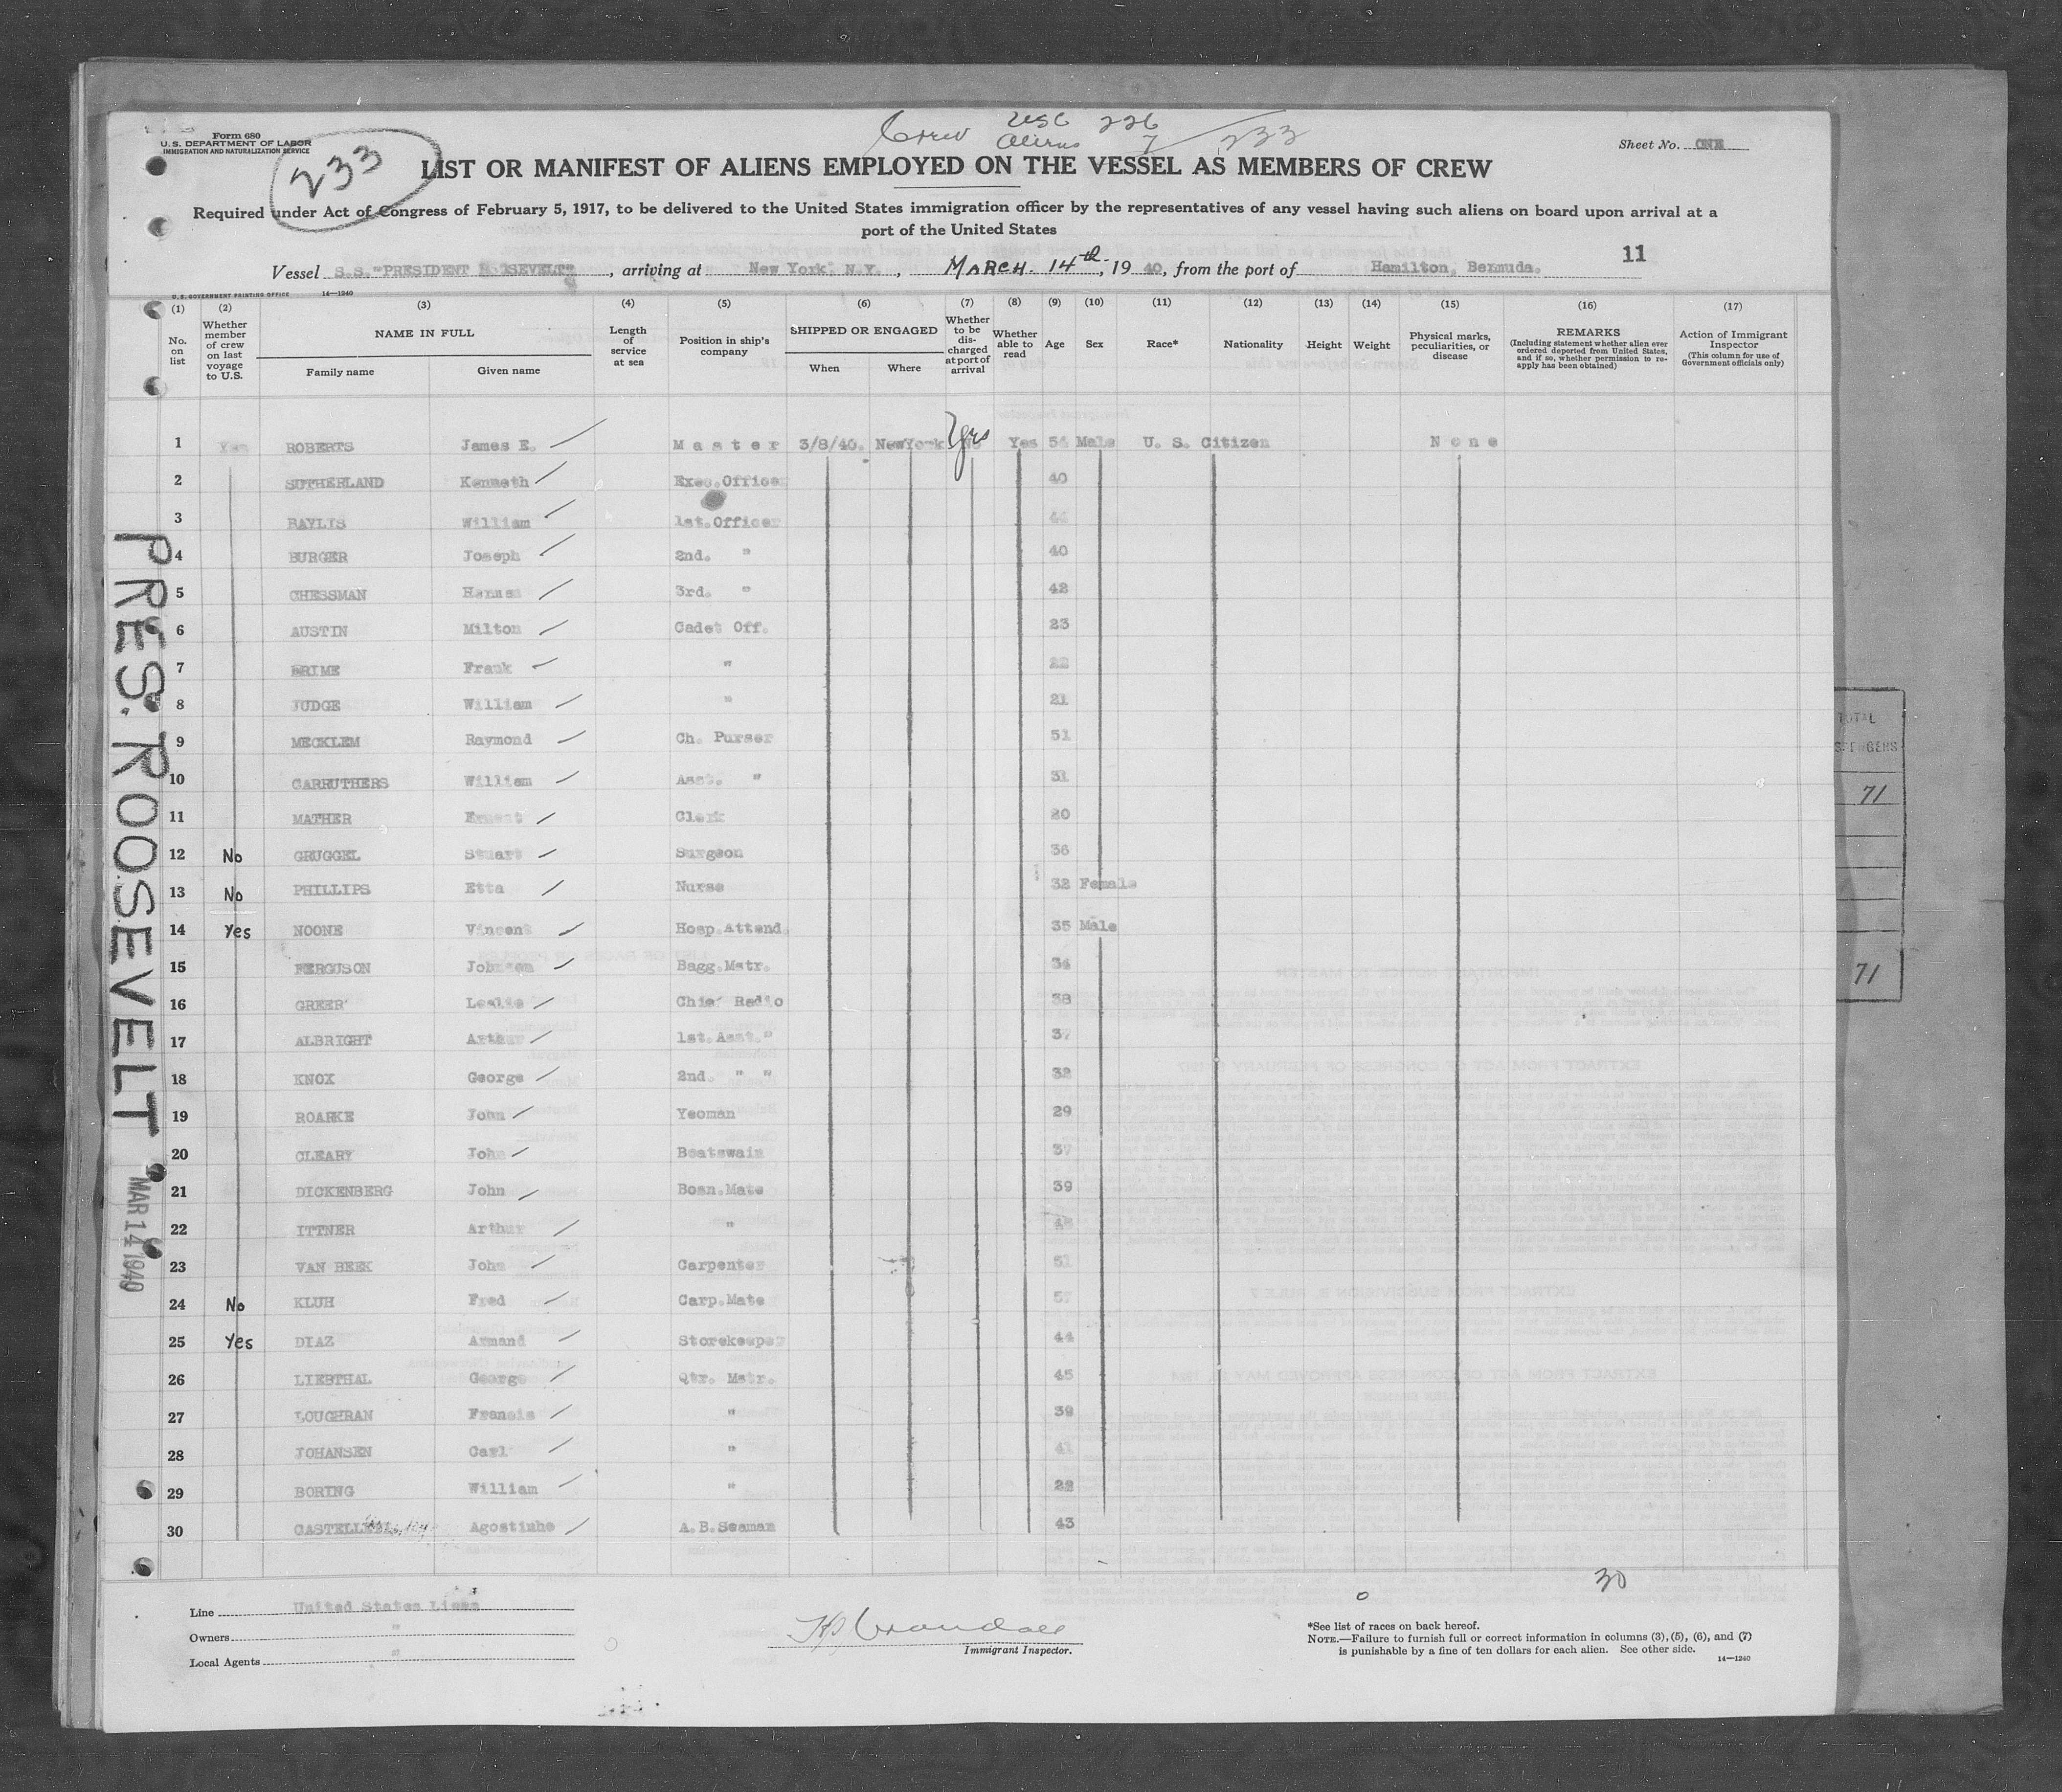 Form 680
U.S. DEPARTMENT OF LABOR
IMMIGRATION AND NATURALIZATION SERVICE
233
Crew USC 226
Aliens 7 233
Sheet No. ONE
LIST OR MANIFEST OF ALIENS EMPLOYED ON THE VESSEL AS MEMBERS OF CREW
Required under Act of Congress of February 5, 1917, to be delivered to the United States immigration officer by the representatives of any vessel having such aliens on board upon arrival at a
port of the United States
11
Vessel S.S. "PRESIDENT ROOSEVELT", arriving at New York, N.Y., MARCH. 14th, 19 40, from the port of Hamilton, Bermuda.
U.S. GOVERNMENT PRINTING OFFICE 14—1240
(1) No. on list
(2) Whether member of crew on last voyage to U.S.
(3) NAME IN FULL Family name Given name
(4) Length of service at sea
(5) Position in ship's company
(6) SHIPPED OR ENGAGED When Where
(7) Whether to be discharged at port of arrival
(8) Whether able to read
(9) Age
(10) Sex
(11) Race*
(12) Nationality
(13) Height
(14) Weight
(15) Physical marks, peculiarities, or disease
(16) REMARKS (Including statement whether alien ever ordered deported from United States, and if so, whether permission to reapply has been obtained)
(17) Action of Immigrant Inspector (This column for use of Government officials only)
1 Yes ROBERTS James E. Master 3/8/40. NewYork No Yes 54 Male U. S. Citizen None
2 SUTHERLAND Kenneth Exec.Office 40
3 BAYLIS William 1st.Officer 44
4 BURGER Joseph 2nd. " 40
5 CHESSMAN Hannes 3rd. " 42
6 AUSTIN Milton Cadet Off. 23
7 BRIME Frank " 22
8 JUDGE William " 21
9 MECKLEM Raymond Ch. Purser 51
10 CARRUTHERS William Asst. " 31
11 MATHER Ernest Clerk 20
12 No GRUGGEL Stuart Surgeon 36
13 No PHILLIPS Etta Nurse 32 Female
14 Yes NOONE Vincent Hosp.Attend. 35 Male
15 FERGUSON Johnson Bagg.Mstr. 34
16 GREER Leslie Chief Radio 38
17 ALBRIGHT Arthur 1st.Asst." 37
18 KNOX George 2nd. " " 32
19 ROARKE John Yeoman 29
20 CLEARY John Boatswain 37
21 DICKENBERG John Bosn.Mate 39
22 ITTNER Arthur "
23 VAN BEEK John Carpenter 51
24 No KLUH Fred Carp.Mate
25 Yes DIAZ Armand Storekeeper 44
26 LIEBTHAL George Qtr. Mstr. 45
27 LOUGHRAN Francis " 39
28 JOHANSEN Carl " 41
29 BORING William " 22
30 Agostinho A.B.Seaman 43
PRES. ROOSEVELT
MAR 14 1940
30
0
Line United States Lines
Owners "
Local Agents "
Immigrant Inspector.
*See list of races on back hereof.
NOTE.—Failure to furnish full or correct information in columns (3), (5), (6), and (7)
is punishable by a fine of ten dollars for each alien. See other side.
14—1240
TOTAL
71
71